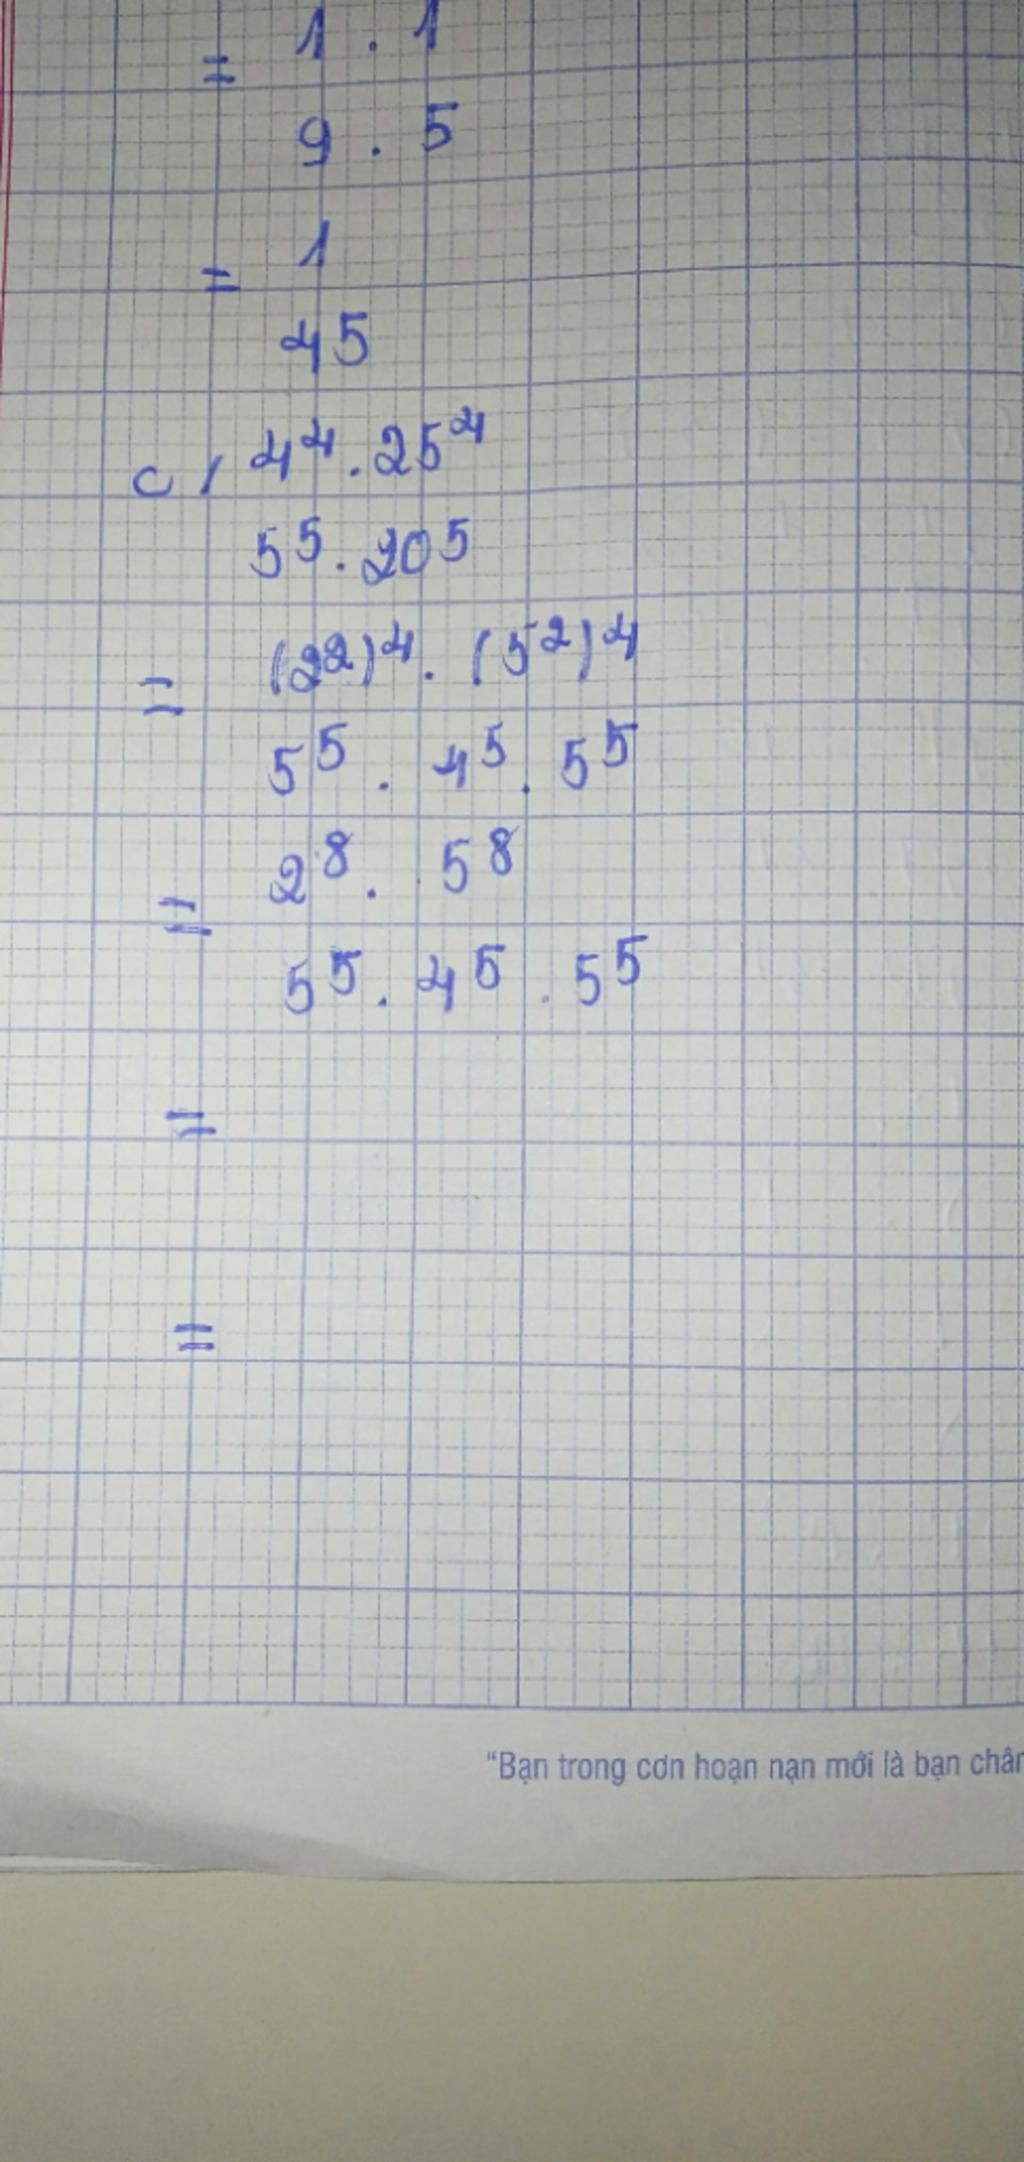 = 1 . 1
9 . 5
= 1
45
c, 4⁴ . 25⁴
5⁵ . 20⁵
= (2²)⁴ . (5²)⁴
5⁵ . 4⁵ . 5⁵
= 2⁸ . 5⁸
5⁵ . 4⁵ . 5⁵
=
=
"Bạn trong cơn hoạn nạn mới là bạn chân